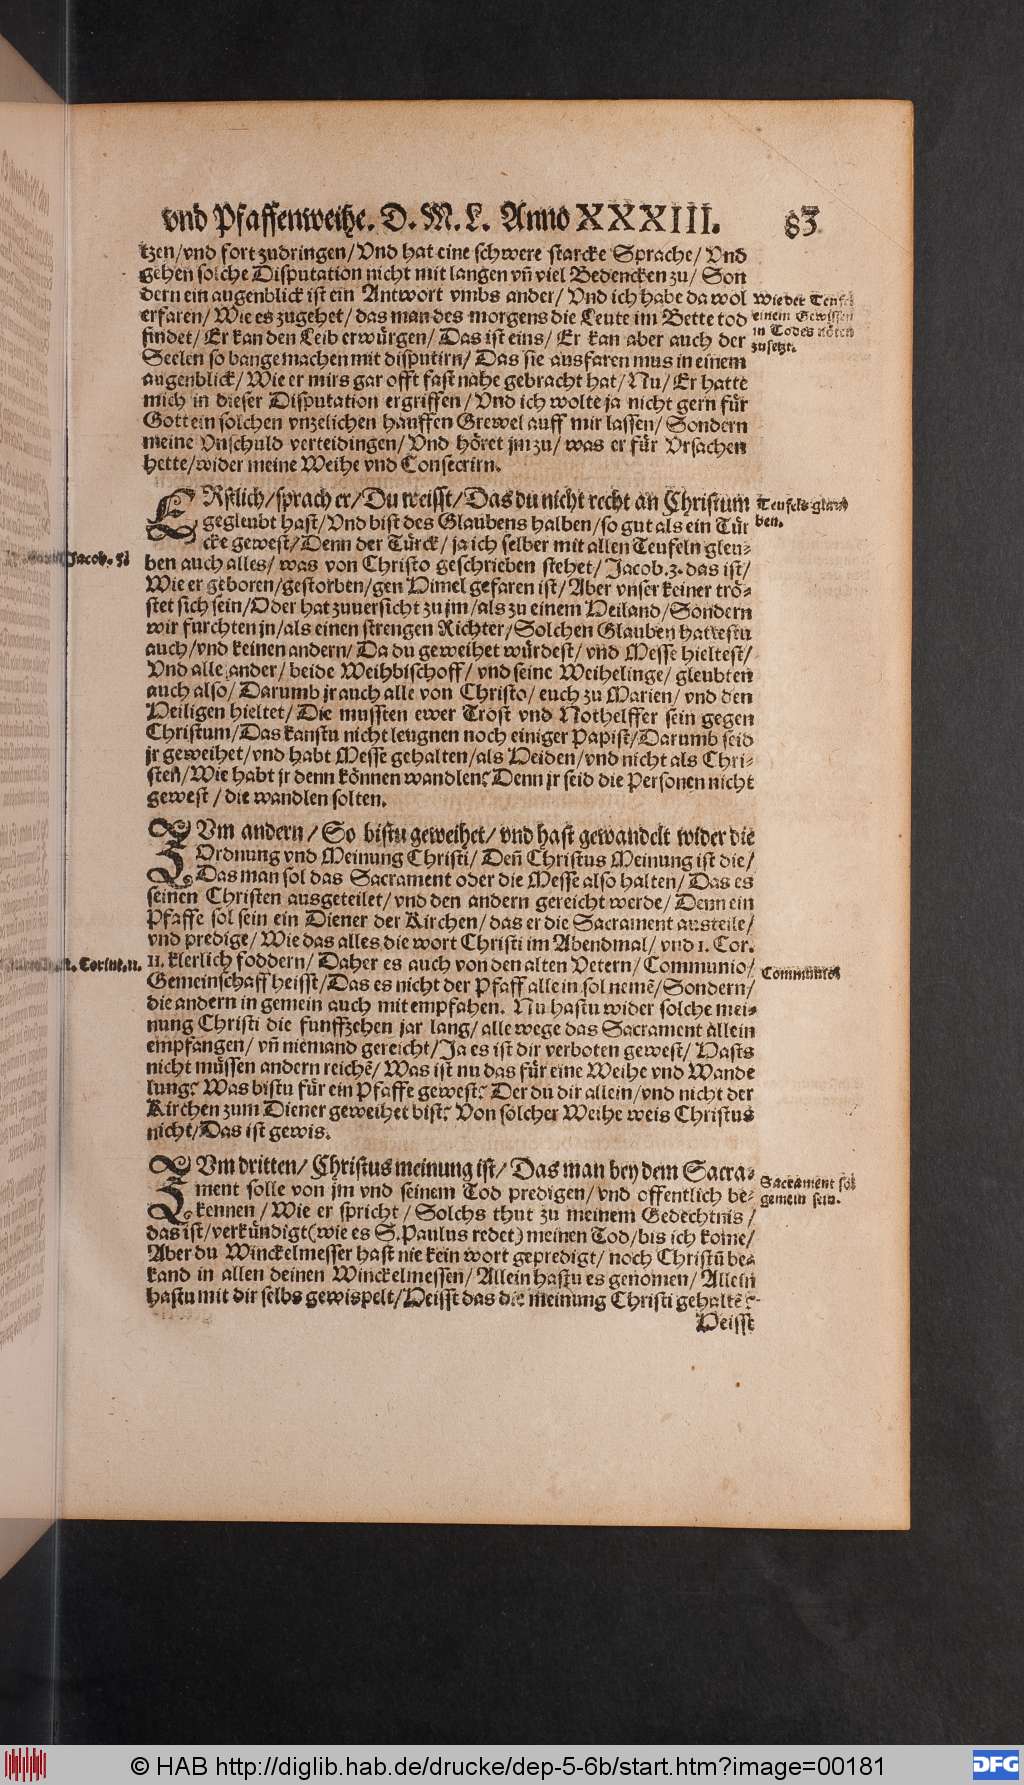 vnd Pfaffenweihe. D. M. L. Anno XXXIII. 83
tzen/vnd fort zudringen/Vnd hat eine schwere starcke Sprache/Vnd
gehen solche Disputation nicht mit langen vñ viel Bedencken zu/ Son
dern ein augenblick ist ein Antwort vmbs ander/ Vnd ich habe da wol
erfaren/ Wie es zugehet/ das man des morgens die Leute im Bette tod
findet/ Er kan den Leib erwürgen/ Das ist eins/ Er kan aber auch der
Seelen so bange machen mit disputirn/ Das sie ausfaren mus in einem
augenblick/ Wie er mirs gar offt fast nahe gebracht hat/ Nu/ Er hatte
mich in dieser Disputation ergriffen/ Vnd ich wolte ja nicht gern für
Gott ein solchen vnzelichen hauffen Grewel auff mir lassen/ Sondern
meine Vnschuld verteidingen/ Vnd höret jm zu/ was er für Vrsachen
hette/wider meine Weihe vnd Consecrirn.
Wie der
einem Gewissen
in Todes nöten
zusetzt.
ERstlich/sprach er/Du weisst/Das du nicht recht an Christum
gegleubt hast/Vnd bist des Glaubens halben/so gut als ein Tür
cke gewest/Denn der Türck/ ja ich selber mit allen Teufeln gleu-
ben auch alles/ was von Christo geschrieben stehet/ Jacob.3. das ist/
Wie er geboren/gestorben/gen Himel gefaren ist/ Aber vnser keiner trö-
stet sich sein/Oder hat zuuersicht zu jm/als zu einem Heiland/Sondern
wir furchten jn/als einen strengen Richter/Solchen Glauben hattestu
auch/vnd keinen andern/ Da du geweihet würdest/ vnd Messe hieltest/
Vnd alle ander/ beide Weihbischoff/ vnd seine Weihelinge/ gleubten
auch also/ Darumb jr auch alle von Christo/ euch zu Marien/ vnd den
Heiligen hieltet/ Die mussten ewer Trost vnd Nothelffer sein gegen
Christum/Das kanstu nicht leugnen noch einiger Papist/Darumb seid
jr geweihet/vnd habt Messe gehalten/als Heiden/vnd nicht als Chri-
sten/Wie habt jr denn können wandlen? Denn jr seid die Personen nicht
gewest / die wandlen solten.
Teufels
ben.
Jacob.
ZVm andern/ So bistu geweihet/ vnd hast gewandelt wider die
Ordnung vnd Meinung Christi/ Deñ Christus Meinung ist die/
Das man sol das Sacrament oder die Messe also halten/ Das es
seinen Christen ausgeteilet/ vnd den andern gereicht werde/ Denn ein
Pfaffe sol sein ein Diener der Kirchen/ das er die Sacrament austeile/
vnd predige/ Wie das alles die wort Christi im Abendmal/ vnd 1. Cor.
11. klerlich foddern/ Daher es auch von den alten Vetern/ Communio/
Gemeinschaff heisst/Das es nicht der Pfaff allein sol nemẽ/Sondern/
die andern in gemein auch mit empfahen. Nu hastu wider solche mei-
nung Christi die funffzehen jar lang/ alle wege das Sacrament allein
empfangen/ vñ niemand gereicht/Ja es ist dir verboten gewest/ Hasts
nicht müssen andern reichẽ/ Was ist nu das für eine Weihe vnd Wande
lung? Was bistu für ein Pfaffe gewest? Der du dir allein/vnd nicht der
Kirchen zum Diener geweihet bist? Von solcher Weihe weis Christus
nicht/Das ist gewis.
Corint. 11.
Communio
ZVm dritten/ Christus meinung ist/ Das man bey dem Sacra-
ment solle von jm vnd seinem Tod predigen/ vnd offentlich be-
kennen/ Wie er spricht/ Solchs thut zu meinem Gedechtnis/
das ist/verkündigt(wie es S. Paulus redet) meinen Tod/bis ich kome/
Aber du Winckelmesser hast nie kein wort gepredigt/ noch Christũ be-
kand in allen deinen Winckelmessen/ Allein hastu es genomen/ Allein
hastu mit dir selbs gewispelt/Heisst das die meinung Christi gehaltẽ?
Heisst
Sacrament sol
gemein sein.
© HAB http://diglib.hab.de/drucke/dep-5-6b/start.htm?image=00181
DFG